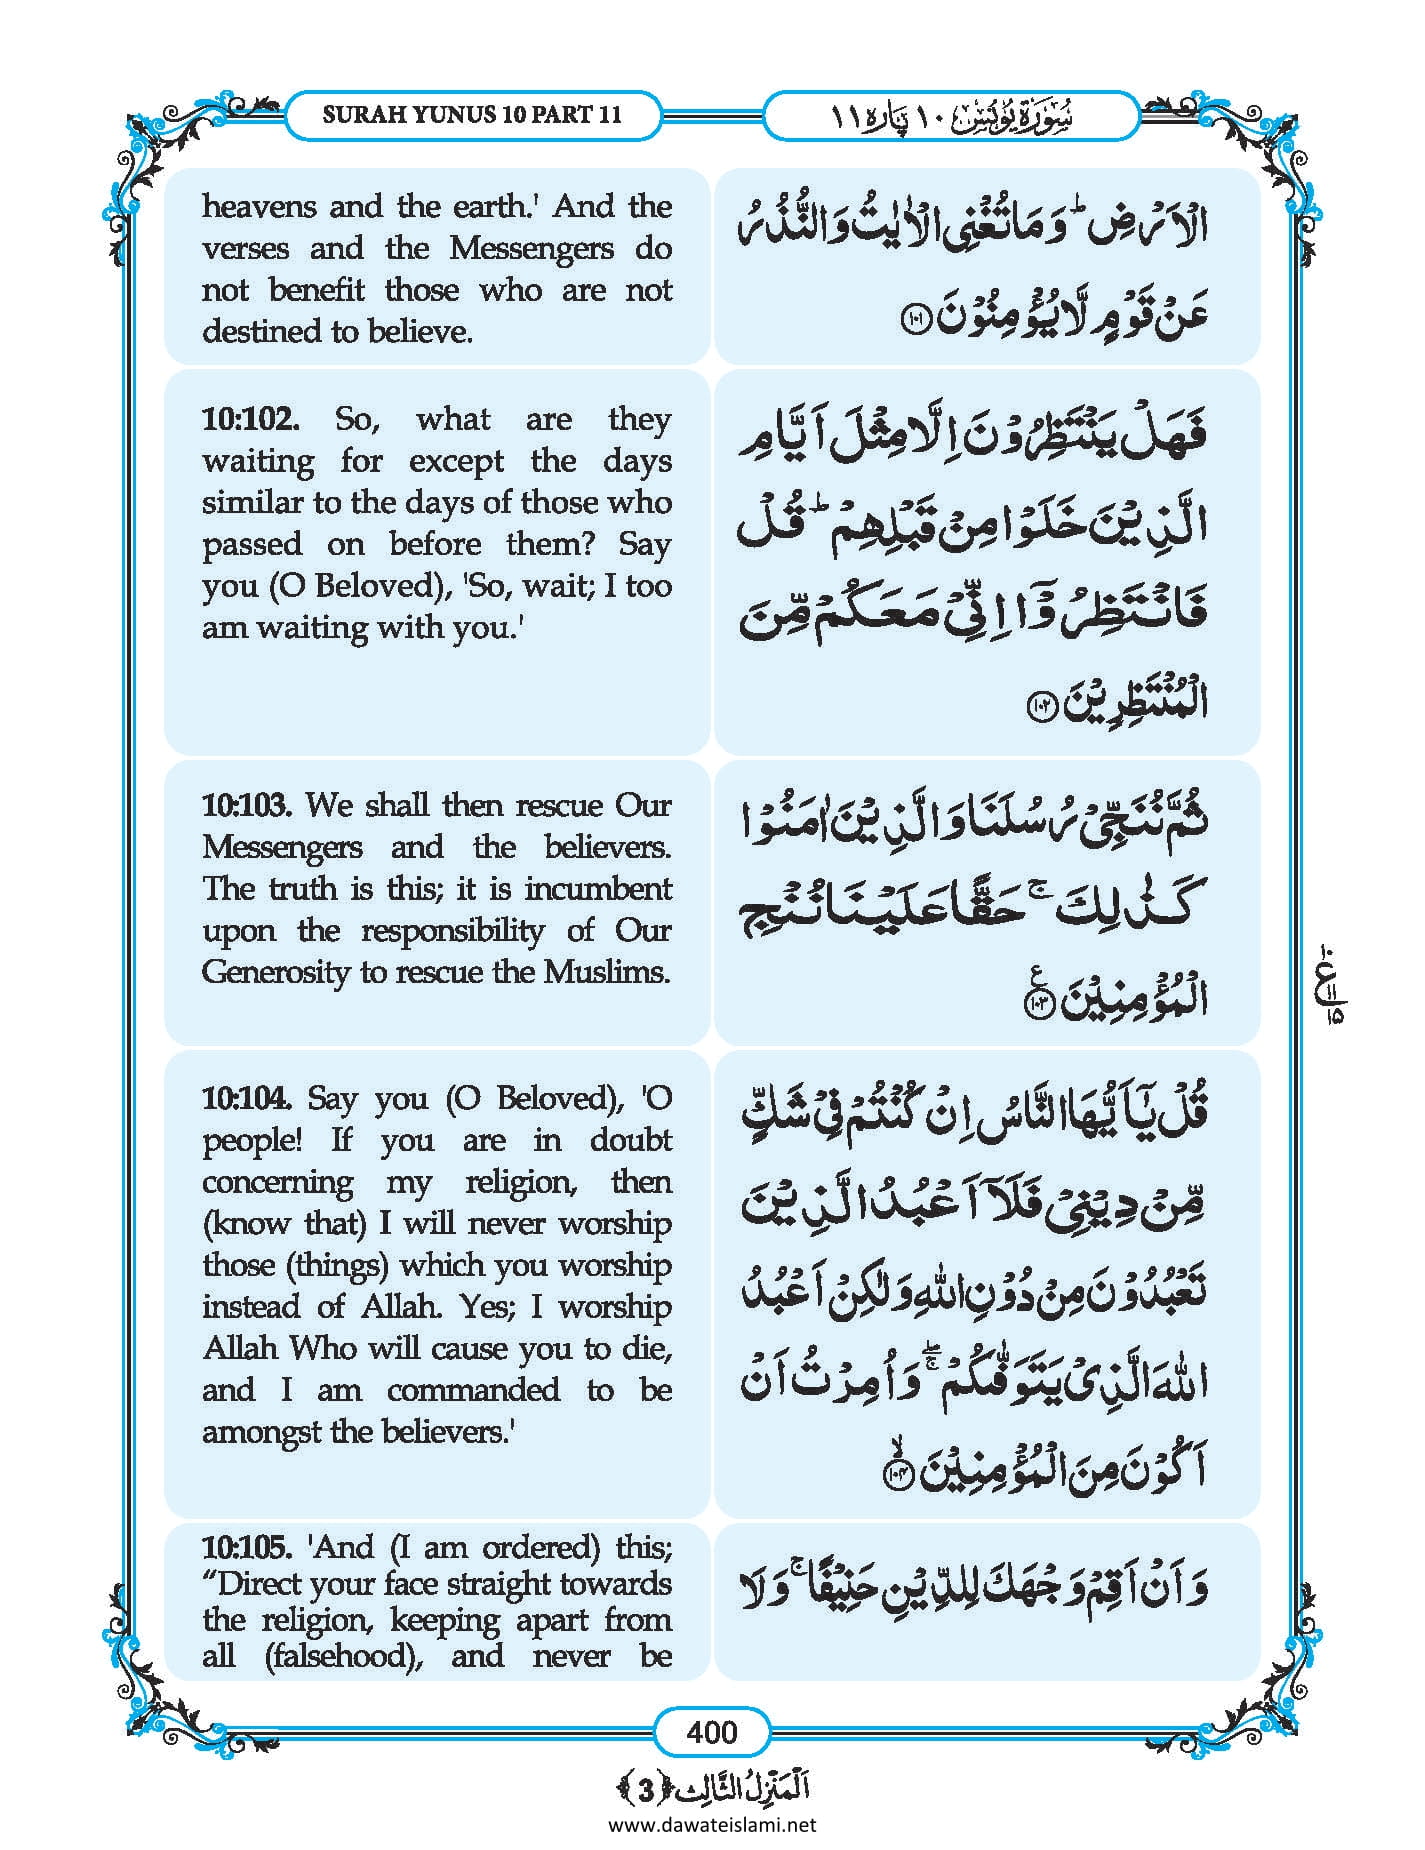 SURAH YUNUS 10 PART 11
سُوْرَۃُ یُوْنُس ۱۰ پارہ ۱۱
heavens and the earth.' And the
verses and the Messengers do
not benefit those who are not
destined to believe.
الْاَرْضِ ؕ وَ مَا تُغْنِی الْاٰیٰتُ وَ النُّذُرُ
عَنْ قَوْمٍ لَّا یُؤْمِنُوْنَ ﴿۱۰۱﴾
10:102. So, what are they
waiting for except the days
similar to the days of those who
passed on before them? Say
you (O Beloved), 'So, wait; I too
am waiting with you.'
فَهَلْ یَنْتَظِرُوْنَ اِلَّا مِثْلَ اَیَّامِ
الَّذِیْنَ خَلَوْا مِنْ قَبْلِهِمْ ؕ قُلْ
فَانْتَظِرُوْۤا اِنِّیْ مَعَكُمْ مِّنَ
الْمُنْتَظِرِیْنَ ﴿۱۰۲﴾
10:103. We shall then rescue Our
Messengers and the believers.
The truth is this; it is incumbent
upon the responsibility of Our
Generosity to rescue the Muslims.
ثُمَّ نُنَجِّیْ رُسُلَنَا وَ الَّذِیْنَ اٰمَنُوْا
كَذٰلِكَ ۚ حَقًّا عَلَیْنَا نُنْجِ
الْمُؤْمِنِیْنَ ﴿۱۰۳﴾ ع
۱۰
ع
۱۱
۱۵
10:104. Say you (O Beloved), 'O
people! If you are in doubt
concerning my religion, then
(know that) I will never worship
those (things) which you worship
instead of Allah. Yes; I worship
Allah Who will cause you to die,
and I am commanded to be
amongst the believers.'
قُلْ یٰۤاَیُّهَا النَّاسُ اِنْ كُنْتُمْ فِیْ شَكٍّ
مِّنْ دِیْنِیْ فَلَاۤ اَعْبُدُ الَّذِیْنَ
تَعْبُدُوْنَ مِنْ دُوْنِ اللّٰهِ وَ لٰكِنْ اَعْبُدُ
اللّٰهَ الَّذِیْ یَتَوَفّٰىكُمْ ۚۖ وَ اُمِرْتُ اَنْ
اَكُوْنَ مِنَ الْمُؤْمِنِیْنَ ﴿۱۰۴﴾ ۙ
10:105. 'And (I am ordered) this;
“Direct your face straight towards
the religion, keeping apart from
all (falsehood), and never be
وَ اَنْ اَقِمْ وَجْهَكَ لِلدِّیْنِ حَنِیْفًا ۚ وَ لَا
400
اَلْمَنْزِلُ الثَّالِث ﴿3﴾
www.dawateislami.net